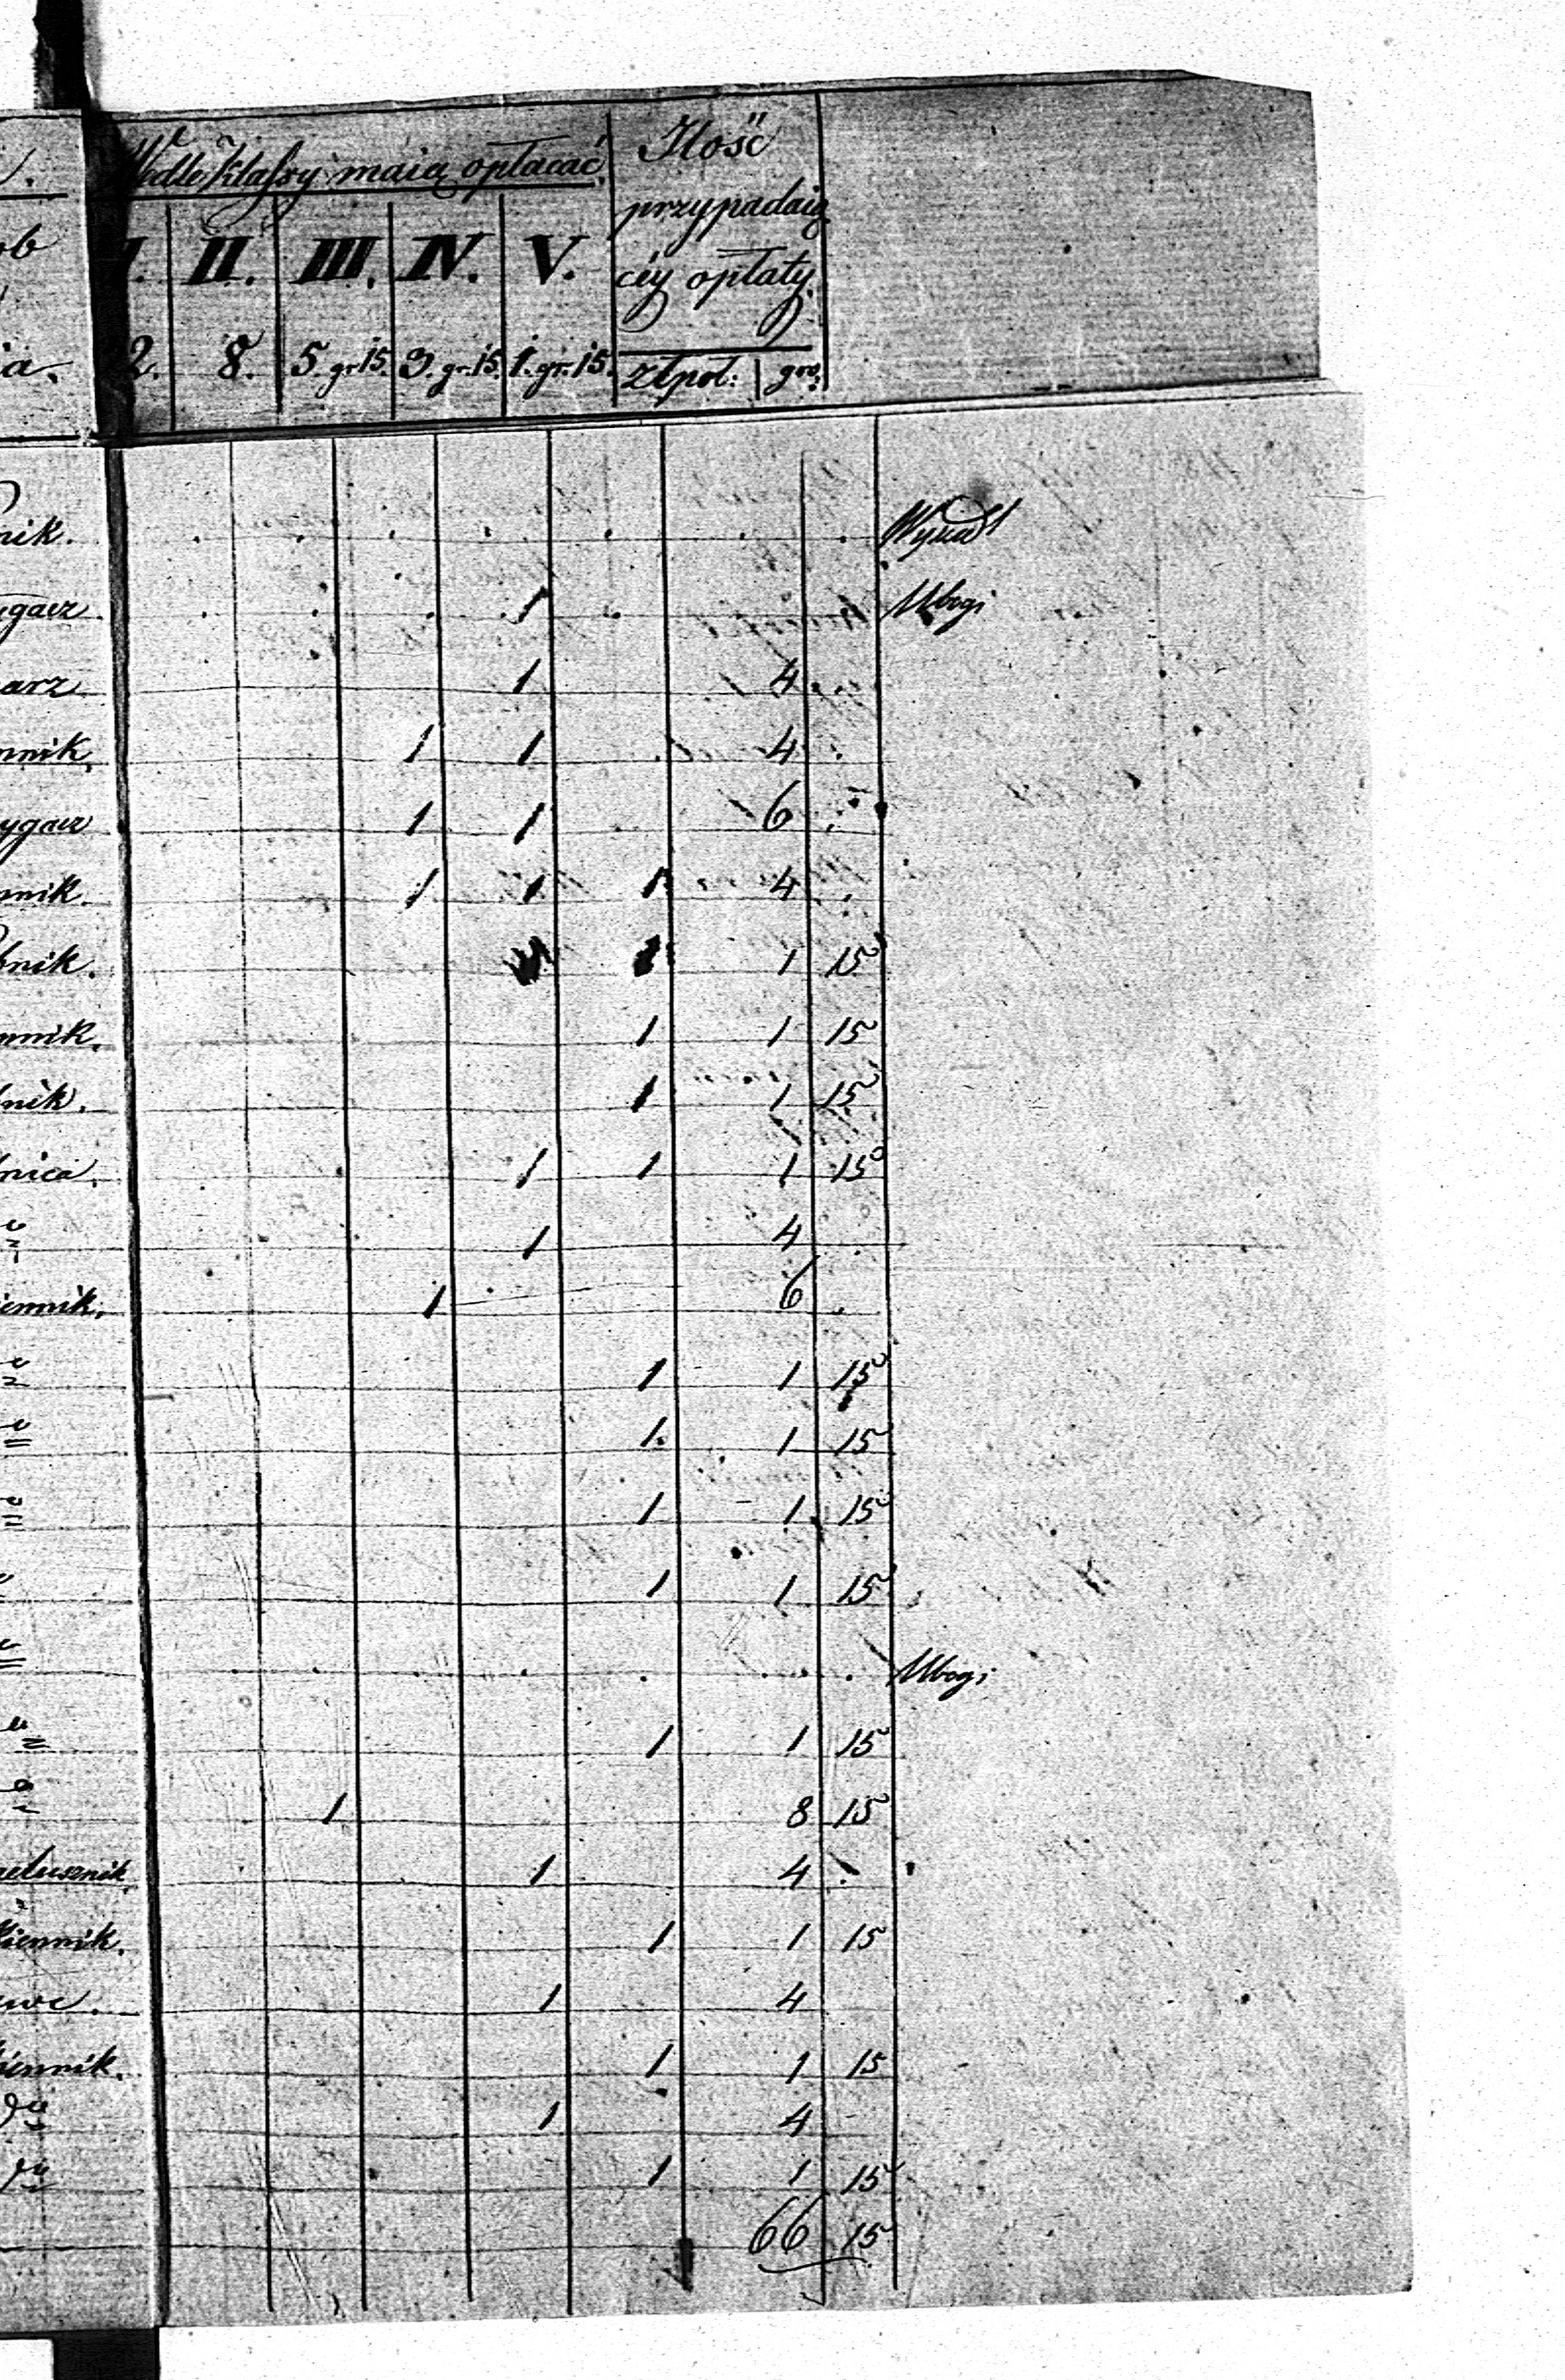 Wedle klassy maią opłacać
Ilość
przypadaią
céy opłaty.
ob
I. II. III. IV. V.
2. 8. 5. gr 15. 3. gr. 15. 1. gr. 15.
ia.
złpol: gro:
nik.
ygarz. 1 Ubogi
arz 1 4
nnik. 1 1 4
ygarz 1 1 6
nnik. 1 1 1 4
bnik. 1 15
nnik. 1 1 15
nik. 1 1 15
nica. 1 1 1 15
1 4
iennik. 1 6
1 1 15
1. 1 15
1 1 15
1 1 15
Ubogi
1 1 15
1 8 15
elusznik 1 4
kiennik. 1 1 15
ewc. 1 4
kiennik. 1 1 15
1 4
1 1 15
66 15